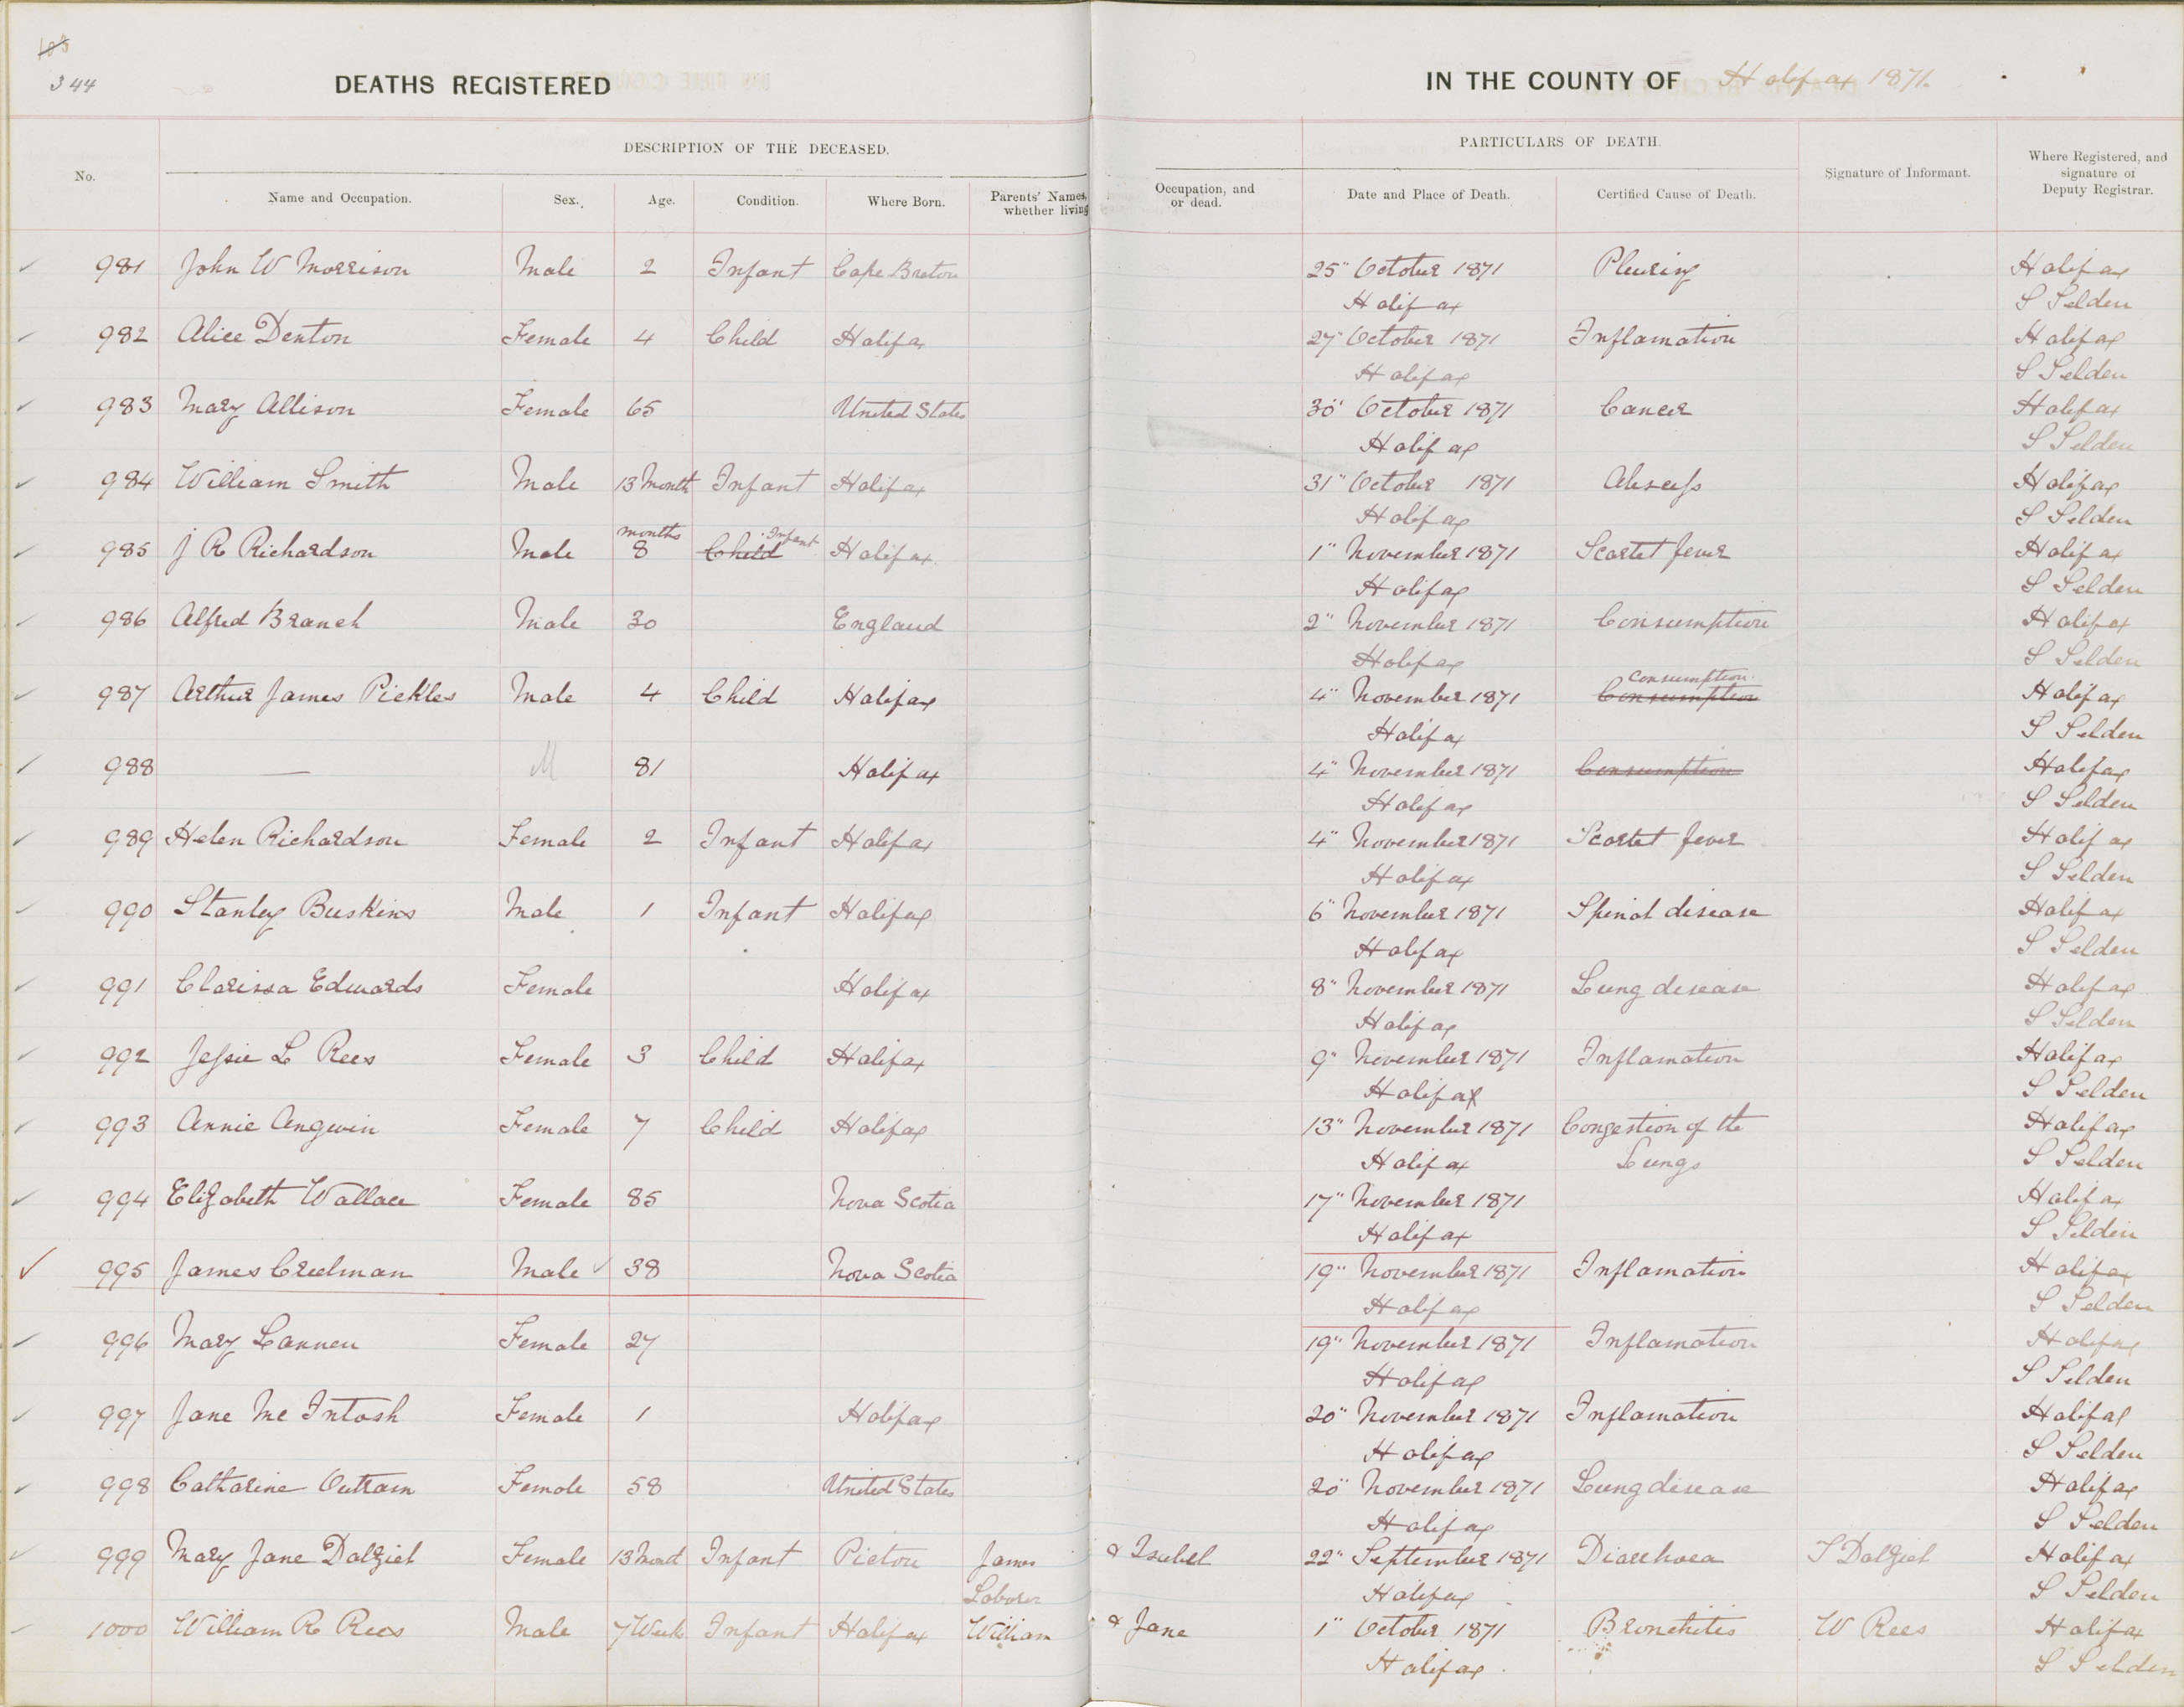 108
344
DEATHS REGISTERED IN THE COUNTY OF Halifax 1871.
DESCRIPTION OF THE DECEASED. PARTICULARS OF DEATH.
No. Name and Occupation. Sex. Age. Condition. Where Born. Parents' Names, whether living Occupation, and or dead. Date and Place of Death. Certified Cause of Death. Signature of Informant. Where Registered, and signature of Deputy Registrar.
981 John W Morrison Male 2 Infant Cape Breton 25" October 1871 Pleurisy Halifax
Halifax S Selden
982 Alice Denton Female 4 Child Halifax 27" October 1871 Inflamation Halifax
Halifax S Selden
983 Mary Allison Female 65 United States 30" October 1871 Cancer Halifax
Halifax S Selden
984 William Smith Male 13 Month Infant Halifax 31" October 1871 Abscess Halifax
Halifax S Selden
months Infant
985 J R Richardson Male 8 Child Halifax. 1" November 1871 Scarlet fever Halifax
Halifax S Selden
986 Alfred Branch Male 30 England 2" November 1871 Consumption Halifax
Halifax S Selden
Consumption.
987 Arthur James Pickles Male 4 Child Halifax 4" November 1871 Consumption Halifax
Halifax S Selden
988 — M 81 Halifax 4" November 1871 Consumption Halifax
Halifax S Selden
989 Helen Richardson Female 2 Infant Halifax 4" November 1871 Scarlet fever Halifax
Halifax S Selden
990 Stanley Buskins Male 1 Infant Halifax 6" November 1871 Spinal disease Halifax
Halifax S Selden
991 Clarissa Edwards Female Halifax 8" November 1871 Lung disease Halifax
Halifax S Selden
992 Jessie L Rees Female 3 Child Halifax 9" November 1871 Inflamation Halifax
Halifax S Selden
993 Annie Angwin Female 7 Child Halifax 13" November 1871 Congestion of the Halifax
Halifax Lungs S Selden
994 Elizabeth Wallace Female 85 Nova Scotia 17" November 1871 Halifax
Halifax S Selden
995 James Creelman Male 38 Nova Scotia 19" November 1871 Inflamation Halifax
Halifax S Selden
996 Mary Lannen Female 27 19" November 1871 Inflamation Halifax
Halifax S Selden
997 Jane Mc Intosh Female 1 Halifax 20" November 1871 Inflamation Halifax
Halifax S Selden
998 Catharine Outram Female 58 United States 20" November 1871 Lung disease Halifax
Halifax S Selden
999 Mary Jane Dalziel Female 13 Mond Infant Pictou James & Isabel 22" September 1871 Diarrhoea J Dalziel Halifax
Laborer Halifax S Selden
1000 William R Rees Male 7 Week Infant Halifax William & Jane 1" October 1871 Bronchitis W Rees Halifax
Halifax S Selden